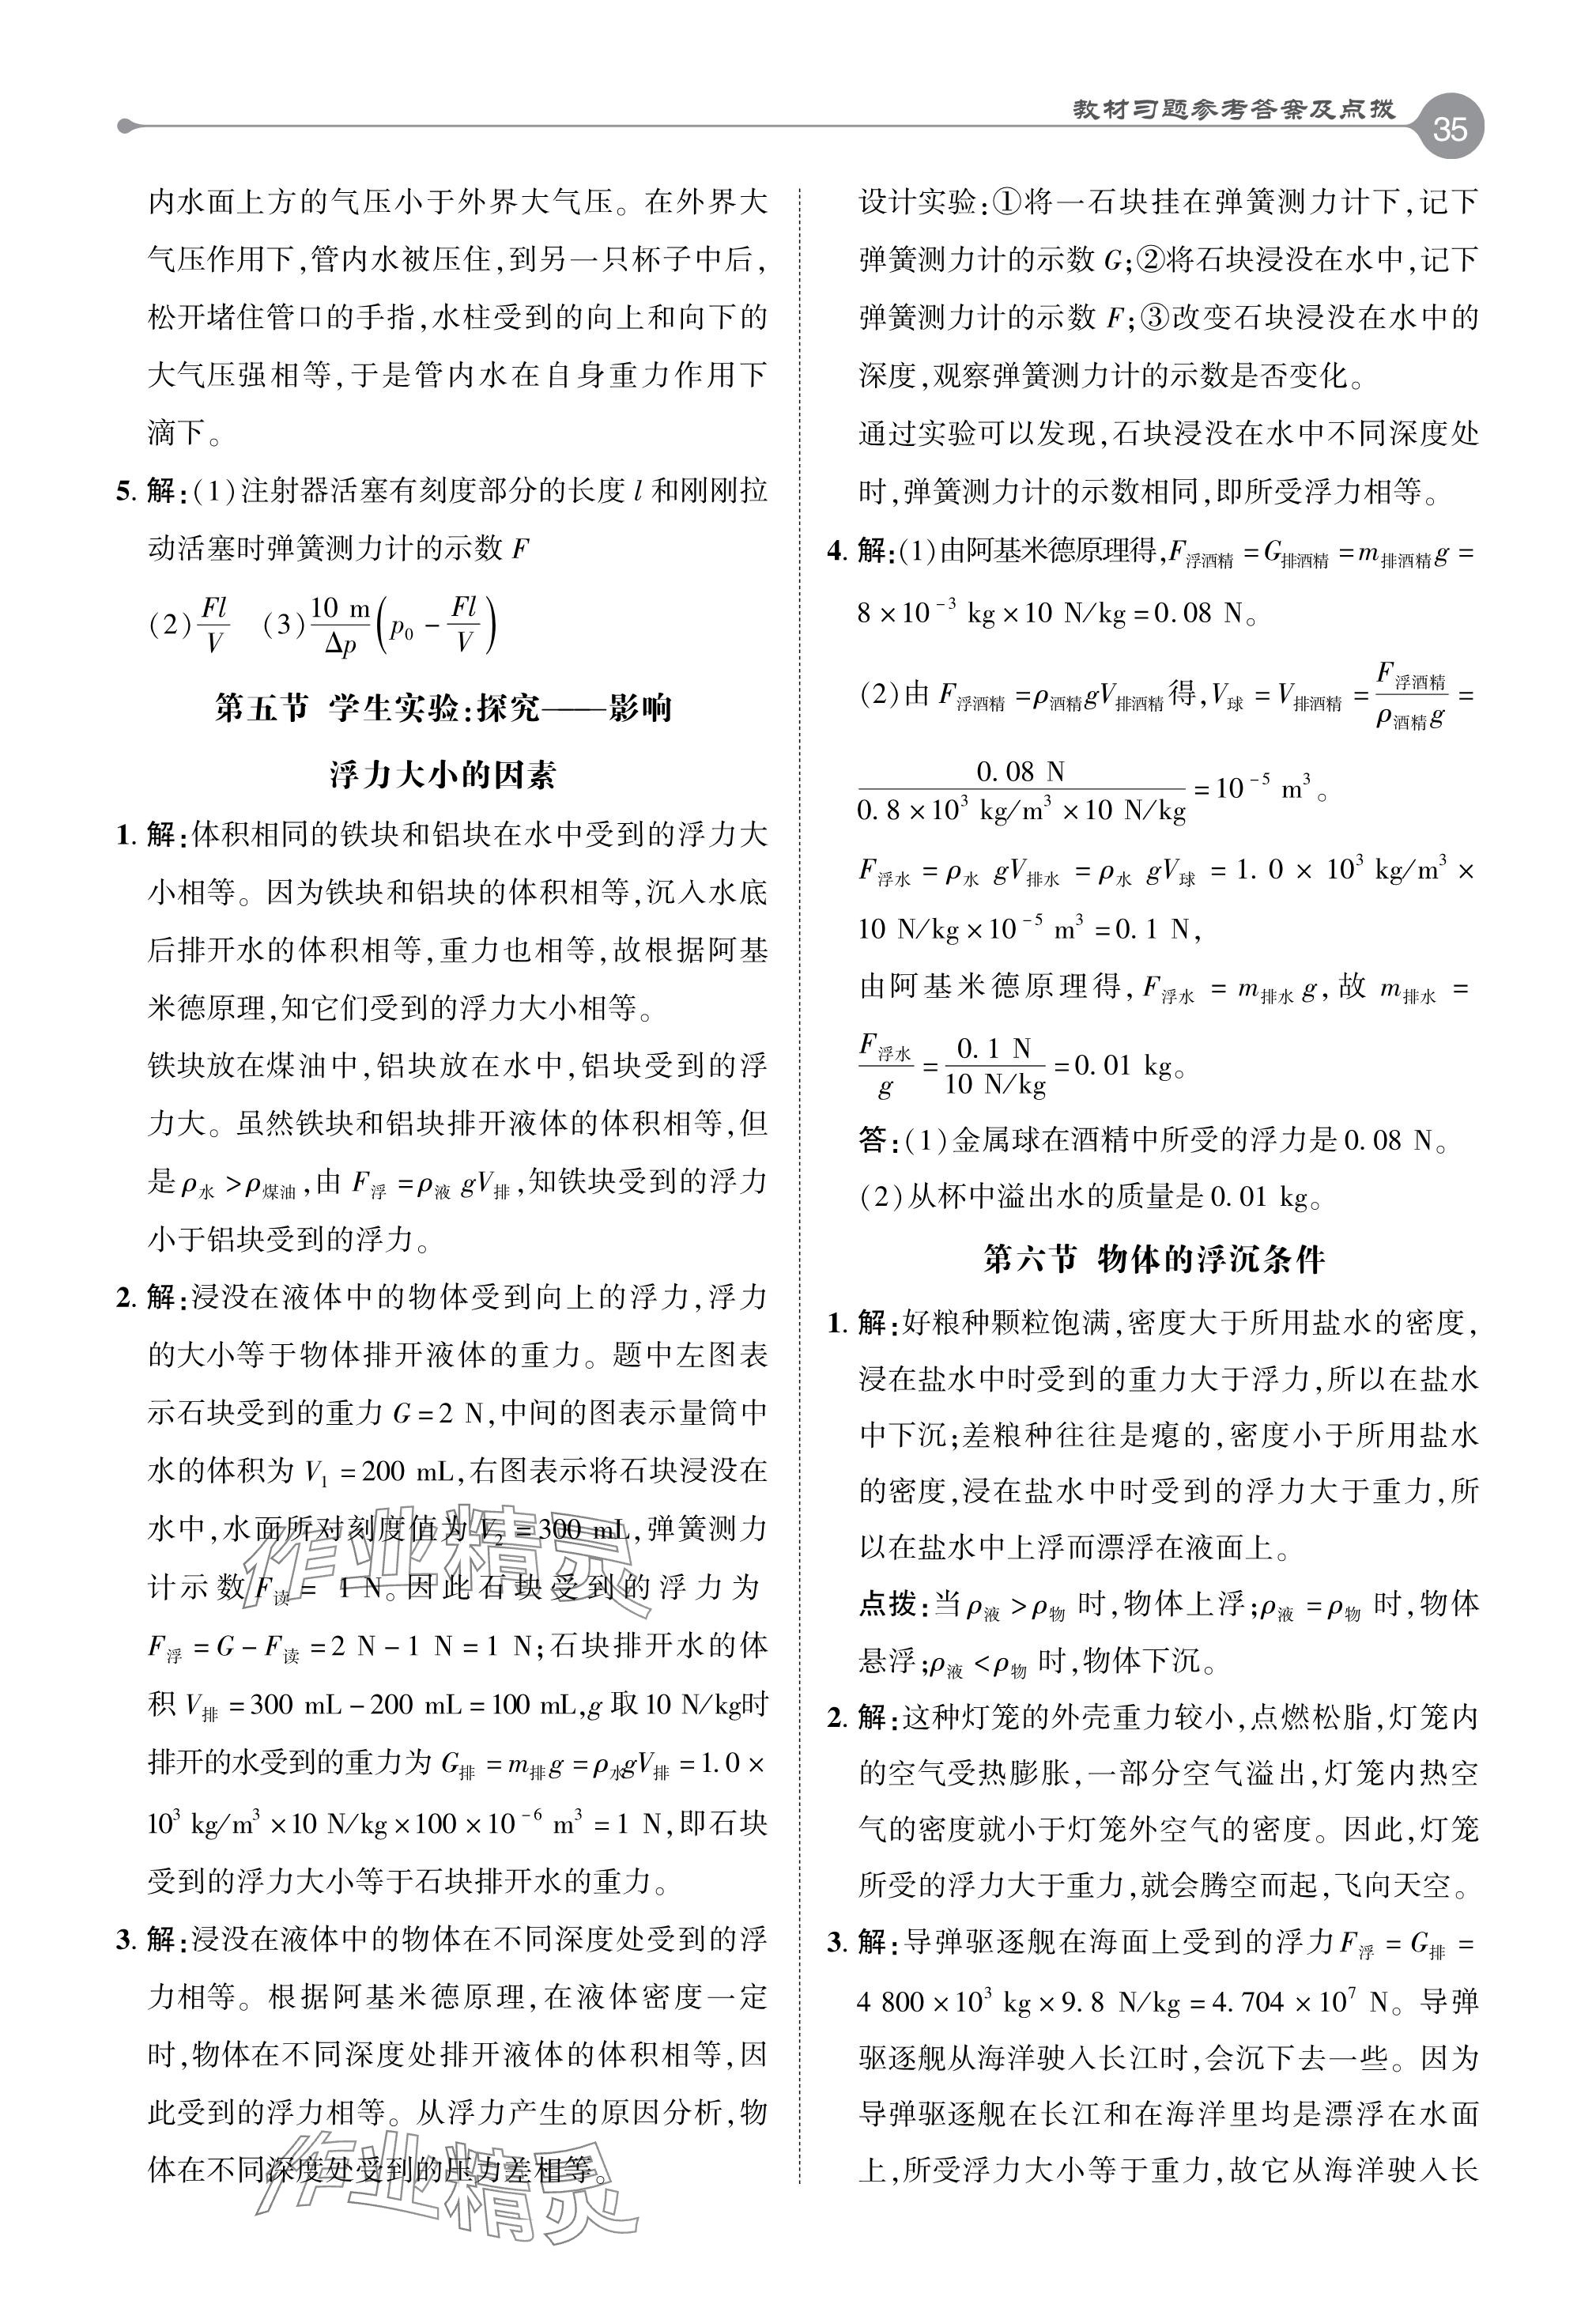 教材习题参考答案及点拨
35
内水面上方的气压小于外界大气压。在外界大
气压作用下,管内水被压住,到另一只杯子中后,
松开堵住管口的手指,水柱受到的向上和向下的
大气压强相等,于是管内水在自身重力作用下
滴下。
5. 解:(1)注射器活塞有刻度部分的长度 l 和刚刚拉
动活塞时弹簧测力计的示数 F
(2) Fl/V (3) 10 m/Δp (p₀ - Fl/V)
第五节 学生实验:探究——影响
浮力大小的因素
1. 解:体积相同的铁块和铝块在水中受到的浮力大
小相等。因为铁块和铝块的体积相等,沉入水底
后排开水的体积相等,重力也相等,故根据阿基
米德原理,知它们受到的浮力大小相等。
铁块放在煤油中,铝块放在水中,铝块受到的浮
力大。虽然铁块和铝块排开液体的体积相等,但
是 ρ水 >ρ煤油,由 F浮 =ρ液 gV排,知铁块受到的浮力
小于铝块受到的浮力。
2. 解:浸没在液体中的物体受到向上的浮力,浮力
的大小等于物体排开液体的重力。题中左图表
示石块受到的重力 G=2 N,中间的图表示量筒中
水的体积为 V₁ =200 mL,右图表示将石块浸没在
水中,水面所对刻度值为 V₂ =300 mL,弹簧测力
计示数 F读 = 1 N。因此石块受到的浮力为
F浮 =G-F读 =2 N-1 N=1 N;石块排开水的体
积 V排 =300 mL-200 mL=100 mL,g 取10 N/kg时
排开的水受到的重力为 G排 =m排g=ρ水gV排 =1.0×
10³ kg/m³ ×10 N/kg×100×10⁻⁶ m³ =1 N,即石块
受到的浮力大小等于石块排开水的重力。
3. 解:浸没在液体中的物体在不同深度处受到的浮
力相等。根据阿基米德原理,在液体密度一定
时,物体在不同深度处排开液体的体积相等,因
此受到的浮力相等。从浮力产生的原因分析,物
体在不同深度处受到的压力差相等。
设计实验:①将一石块挂在弹簧测力计下,记下
弹簧测力计的示数 G;②将石块浸没在水中,记下
弹簧测力计的示数 F;③改变石块浸没在水中的
深度,观察弹簧测力计的示数是否变化。
通过实验可以发现,石块浸没在水中不同深度处
时,弹簧测力计的示数相同,即所受浮力相等。
4. 解:(1)由阿基米德原理得,F浮酒精 =G排酒精 =m排酒精g=
8×10⁻³ kg×10 N/kg=0.08 N。
(2)由 F浮酒精 =ρ酒精gV排酒精得,V球 =V排酒精 = F浮酒精/ρ酒精g =
0.08 N/0.8×10³ kg/m³ ×10 N/kg =10⁻⁵ m³。
F浮水 =ρ水 gV排水 =ρ水 gV球 =1.0×10³ kg/m³ ×
10 N/kg×10⁻⁵ m³ =0.1 N,
由阿基米德原理得,F浮水 =m排水g,故 m排水 =
F浮水/g = 0.1 N/10 N/kg =0.01 kg。
答:(1)金属球在酒精中所受的浮力是0.08 N。
(2)从杯中溢出水的质量是0.01 kg。
第六节 物体的浮沉条件
1. 解:好粮种颗粒饱满,密度大于所用盐水的密度,
浸在盐水中时受到的重力大于浮力,所以在盐水
中下沉;差粮种往往是瘪的,密度小于所用盐水
的密度,浸在盐水中时受到的浮力大于重力,所
以在盐水中上浮而漂浮在液面上。
点拨:当ρ液 >ρ物 时,物体上浮;ρ液 =ρ物 时,物体
悬浮;ρ液 <ρ物 时,物体下沉。
2. 解:这种灯笼的外壳重力较小,点燃松脂,灯笼内
的空气受热膨胀,一部分空气溢出,灯笼内热空
气的密度就小于灯笼外空气的密度。因此,灯笼
所受的浮力大于重力,就会腾空而起,飞向天空。
3. 解:导弹驱逐舰在海面上受到的浮力F浮 =G排 =
4 800×10³ kg×9.8 N/kg=4.704×10⁷ N。导弹
驱逐舰从海洋驶入长江时,会沉下去一些。因为
导弹驱逐舰在长江和在海洋里均是漂浮在水面
上,所受浮力大小等于重力,故它从海洋驶入长
作业精灵
作业精灵